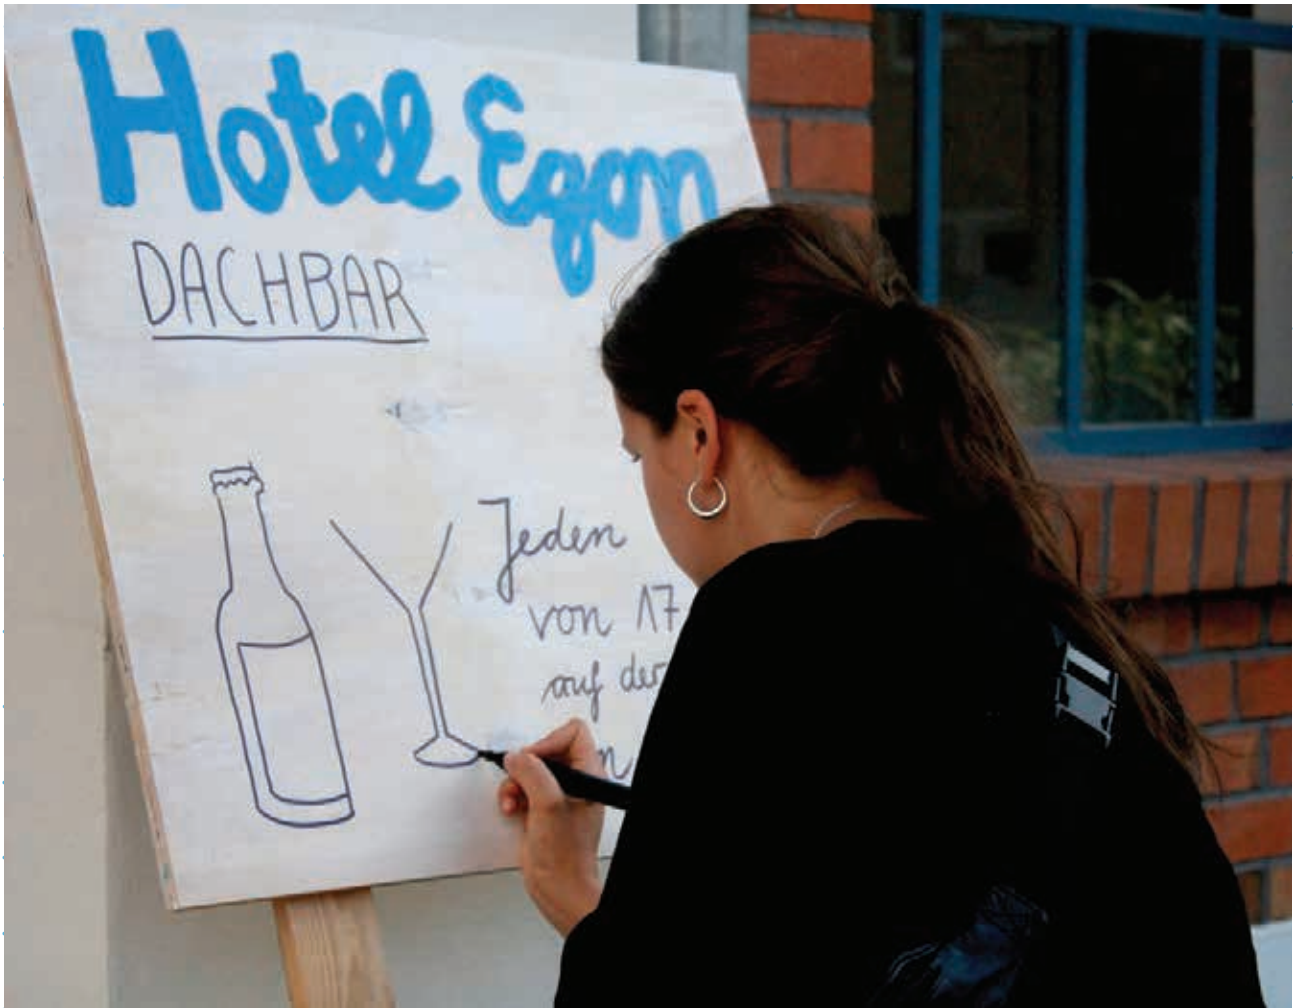 Hotel Egon
DACHBAR
Jeden
von 17
auf der